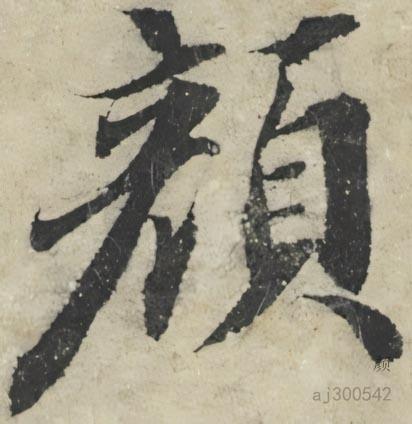 顔
颜
aj300542